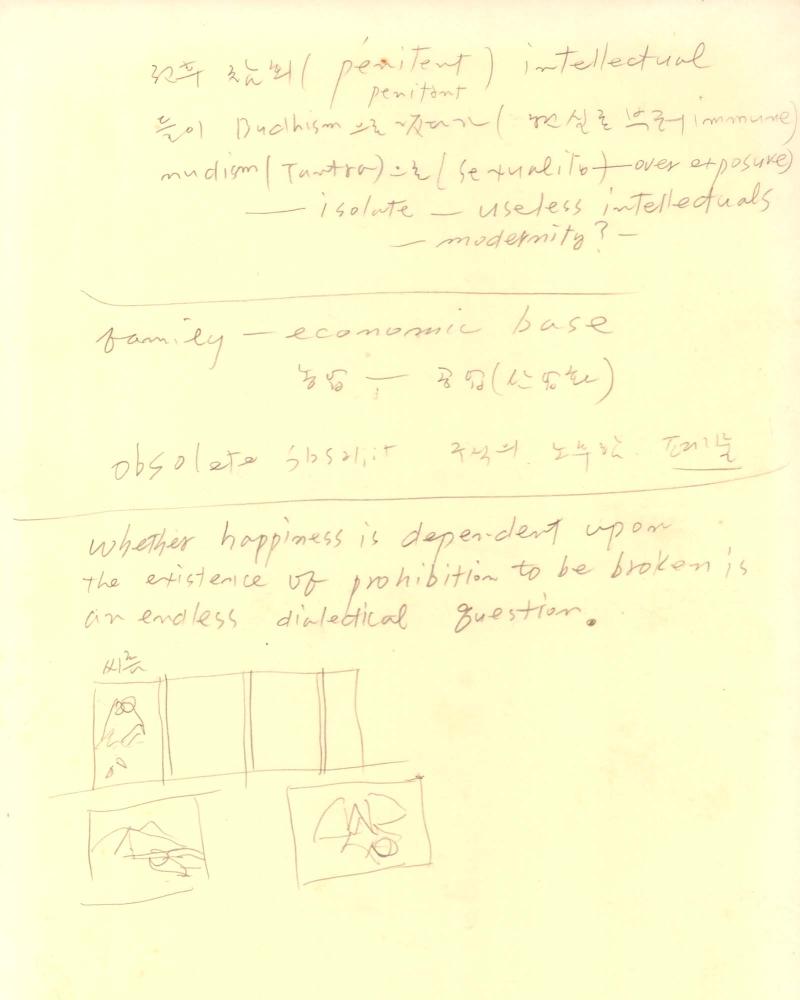 전후 참회 ( pénitent ) intellectual
penitant
들이 Budhism 으로 갔다가 ( 현실로 immune)
nudism ( Tantra) 으로 ( sexuality — over exposure)
— isolate — useless intellectuals
— modernity? —
family — economic base
농업 — 공업 (산업화)
obsolete
whether happiness is dependent upon
the existence of prohibition to be broken is
an endless dialectical question.
씨름